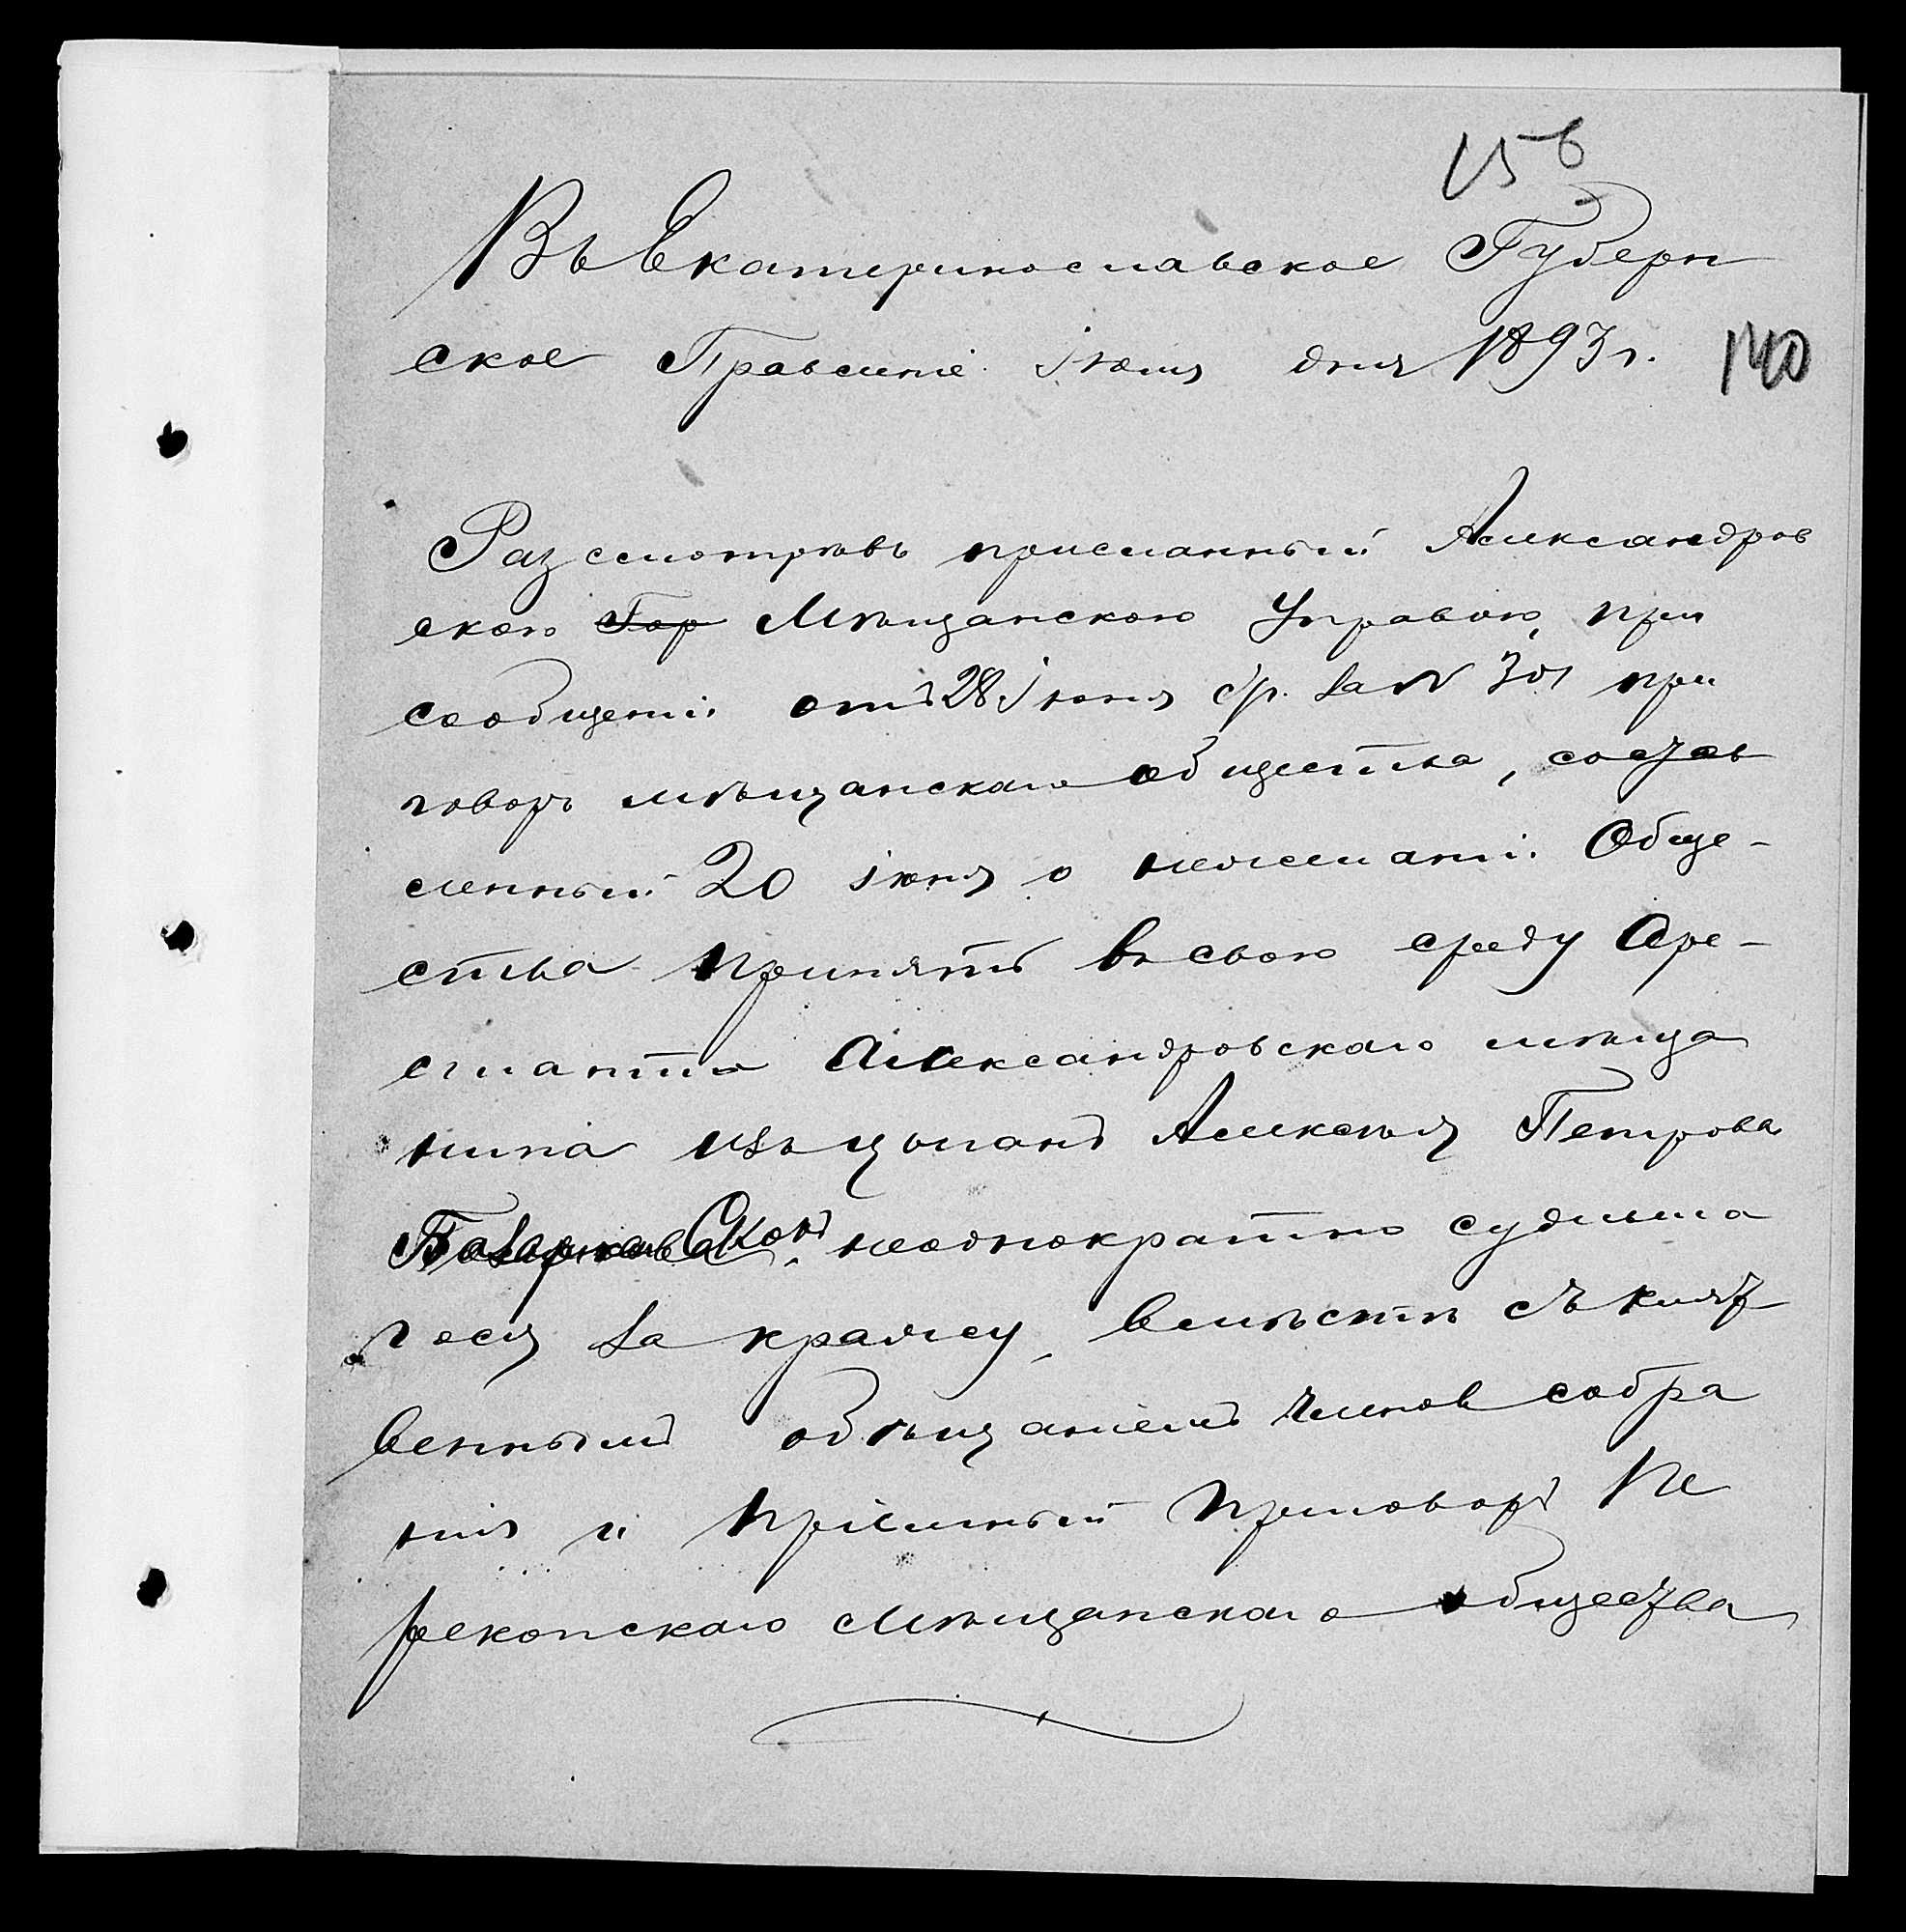 156
Въ Екатеринославское Губерн
ское Правленіе іюня дня 1893 г.
140
Разсмотрѣвъ присланный Александров
скою Гор Мѣщанскою Управою, при
сообщеніи отъ 28 іюня с/г. за N 301 при
говоръ мѣщанскаго общества, состав
ленный 20 іюня о нежеланіи Обще-
ства принять въ свою среду Аре-
станта Александровскаго мѣща
нина изъ цыганъ Алексѣя Петрова
неоднократно судивша
гося за кражу, вмѣстѣ съ кляt
веннымъ обѣщаніемъ членовъ собра
нія и пріемный приговоръ Пе
рекопскаго Мѣщанскаго общества